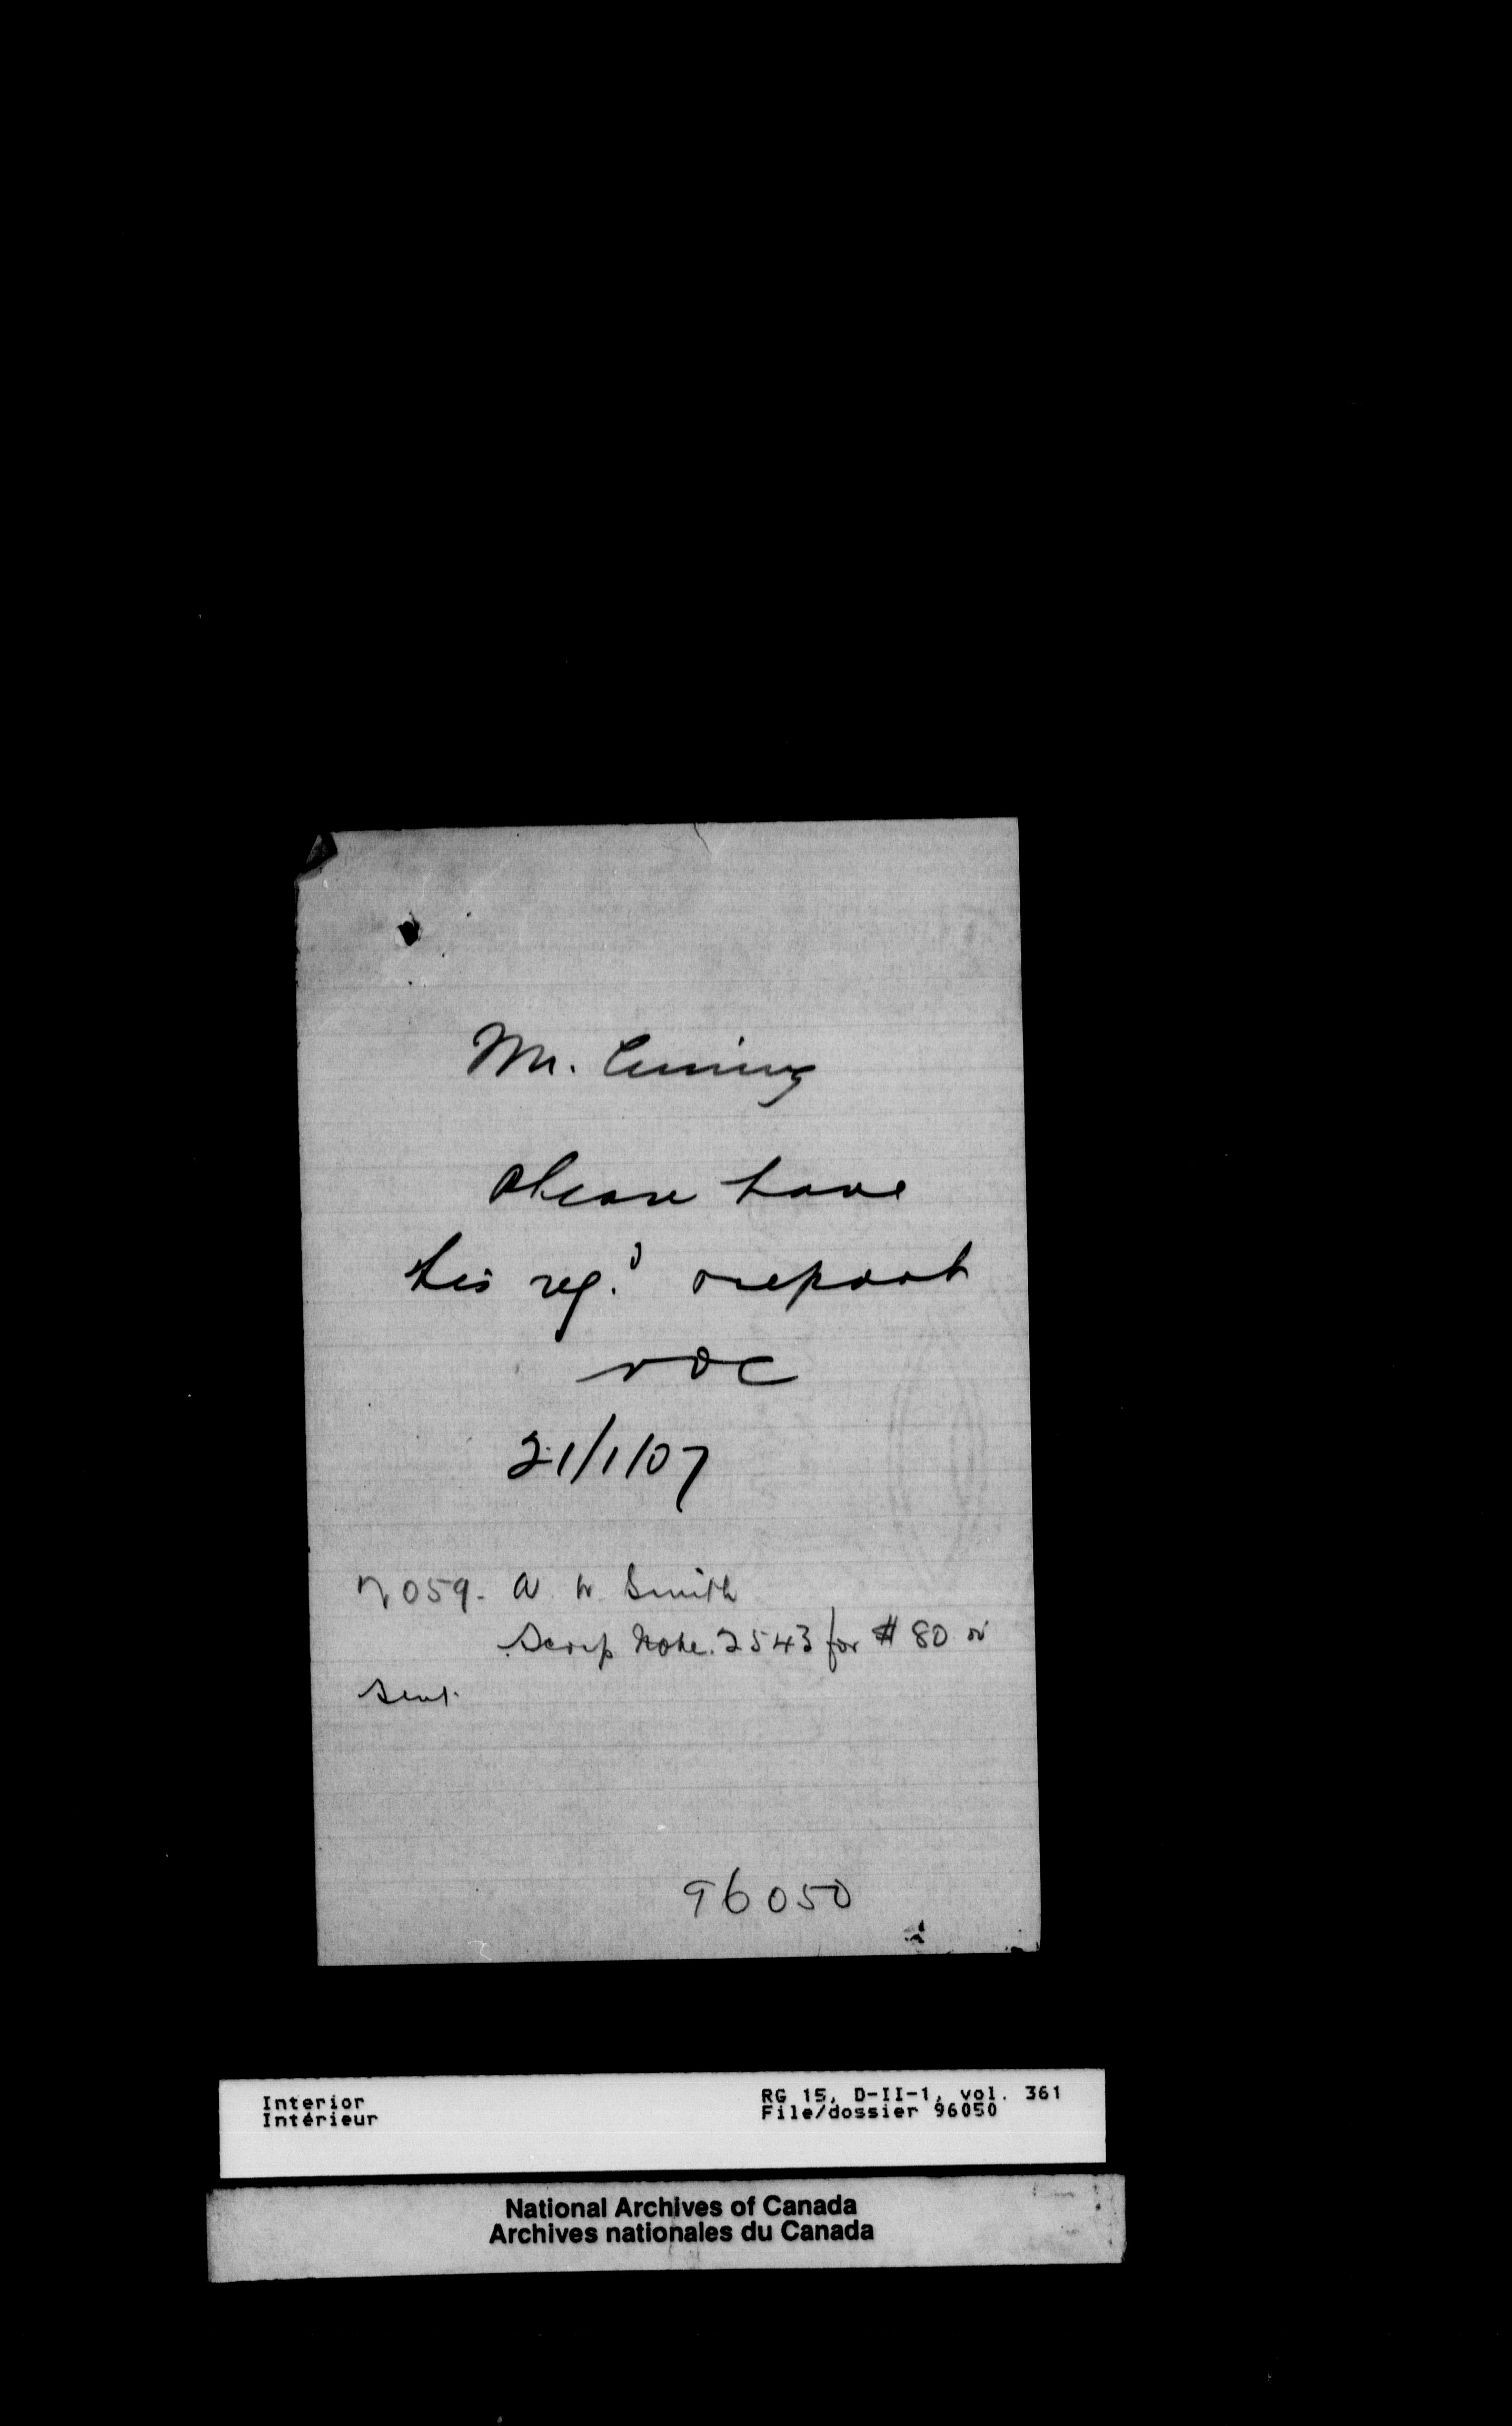 Mr. Cuming
Please have
this reg.d & report
NOC
21/1/07
N 059. A W Smith
Scrip Note. 2543 for $80 is
sent.
96050
Interior
Intérieur
RG 15, D-II-1, vol. 361
File/dossier 96050
National Archives of Canada
Archives nationales du Canada